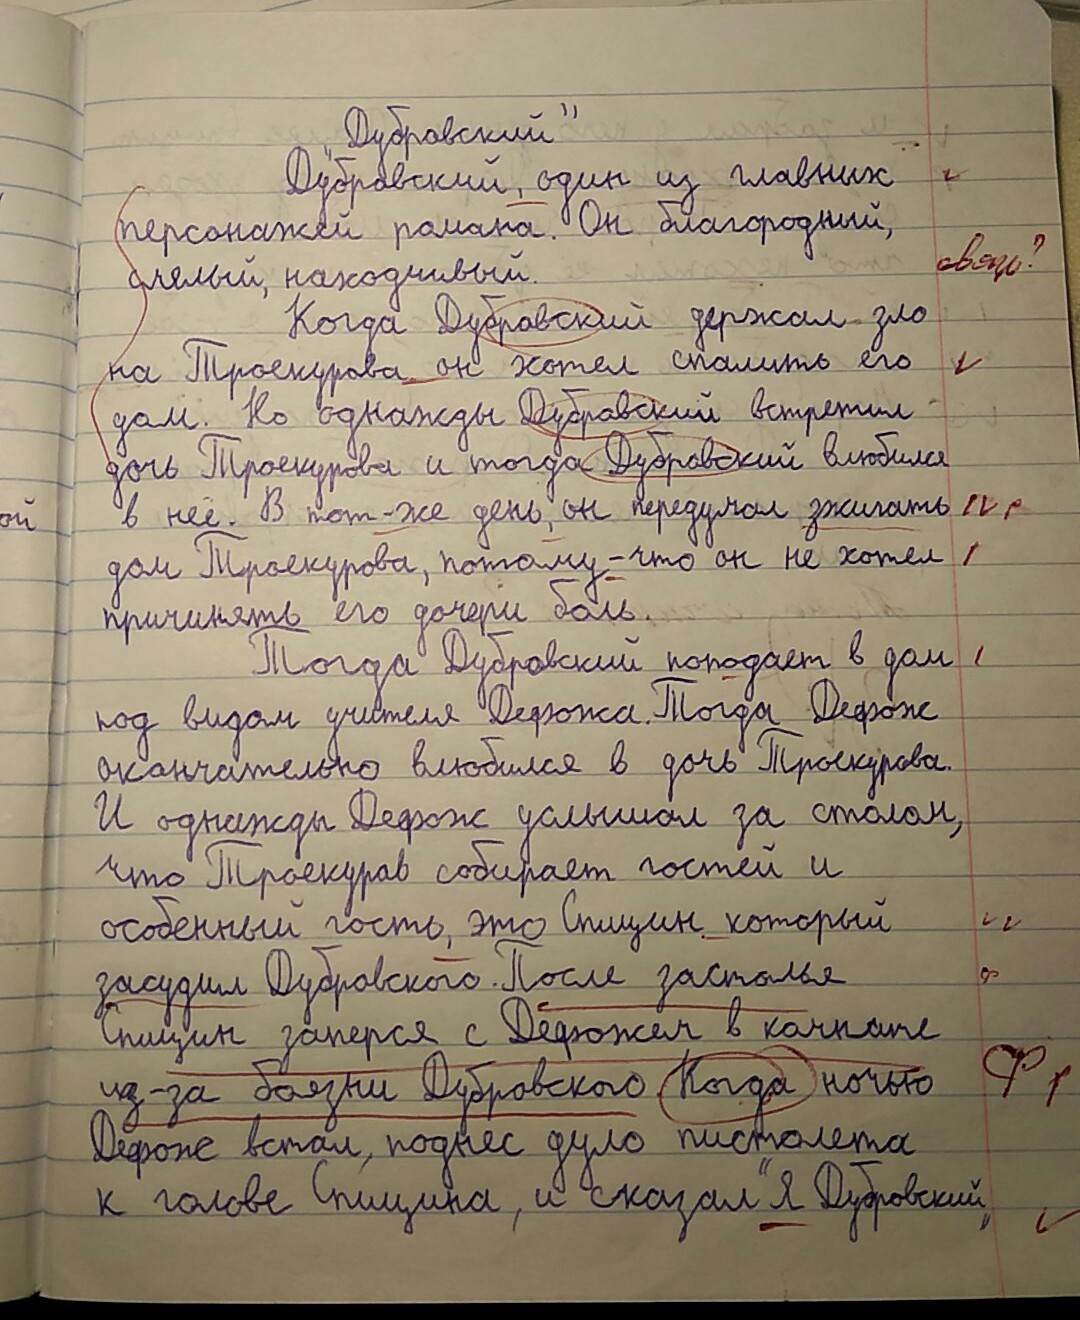 „Дубровский"
Дубровский, один из главных
персонажей романа. Он благородный,
смелый, находчивый. связь?
Когда Дубровский держал зло
на Троекурова он хотел спалить его
дом. Но однажды Дубровский встретил
дочь Троекурова и тогда Дубровский влюбился
в неё. В тот-же день, он передумал зжигать
ой
дом Троекурова, потому-что он не хотел
причинять его дочери боль.
Тогда Дубровский поподает в дом
под видом учителя Дефожа. Тогда Дефож
окончательно влюбился в дочь Троекурова.
И однажды Дефож услышал за столом,
что Троекуров собирает гостей и
особенный гость, это Спицин который
засудил Дубровского. После застолья
Спицин заперся с Дефожем в комнате
из-за боязни Дубровского. Когда ночью Ф р
Дефож встал, поднёс дуло пистолета
к голове Спицина, и сказал "Я Дубровский„